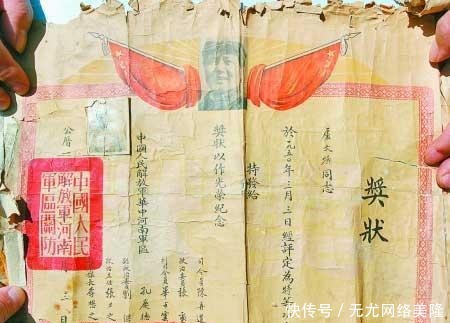 獎狀
文 同志
於一九五〇年三月三日經評定為特等
特發給
獎狀以作光榮紀念
中國人民解放軍華中河南軍區
司令員陳再道
政治委員張
副司令員畢
孔慶德
副政治委員劉
政治主任張
公曆
三
中國人民
解放軍河南
軍區關防
快传号 / 无尤网络美隆